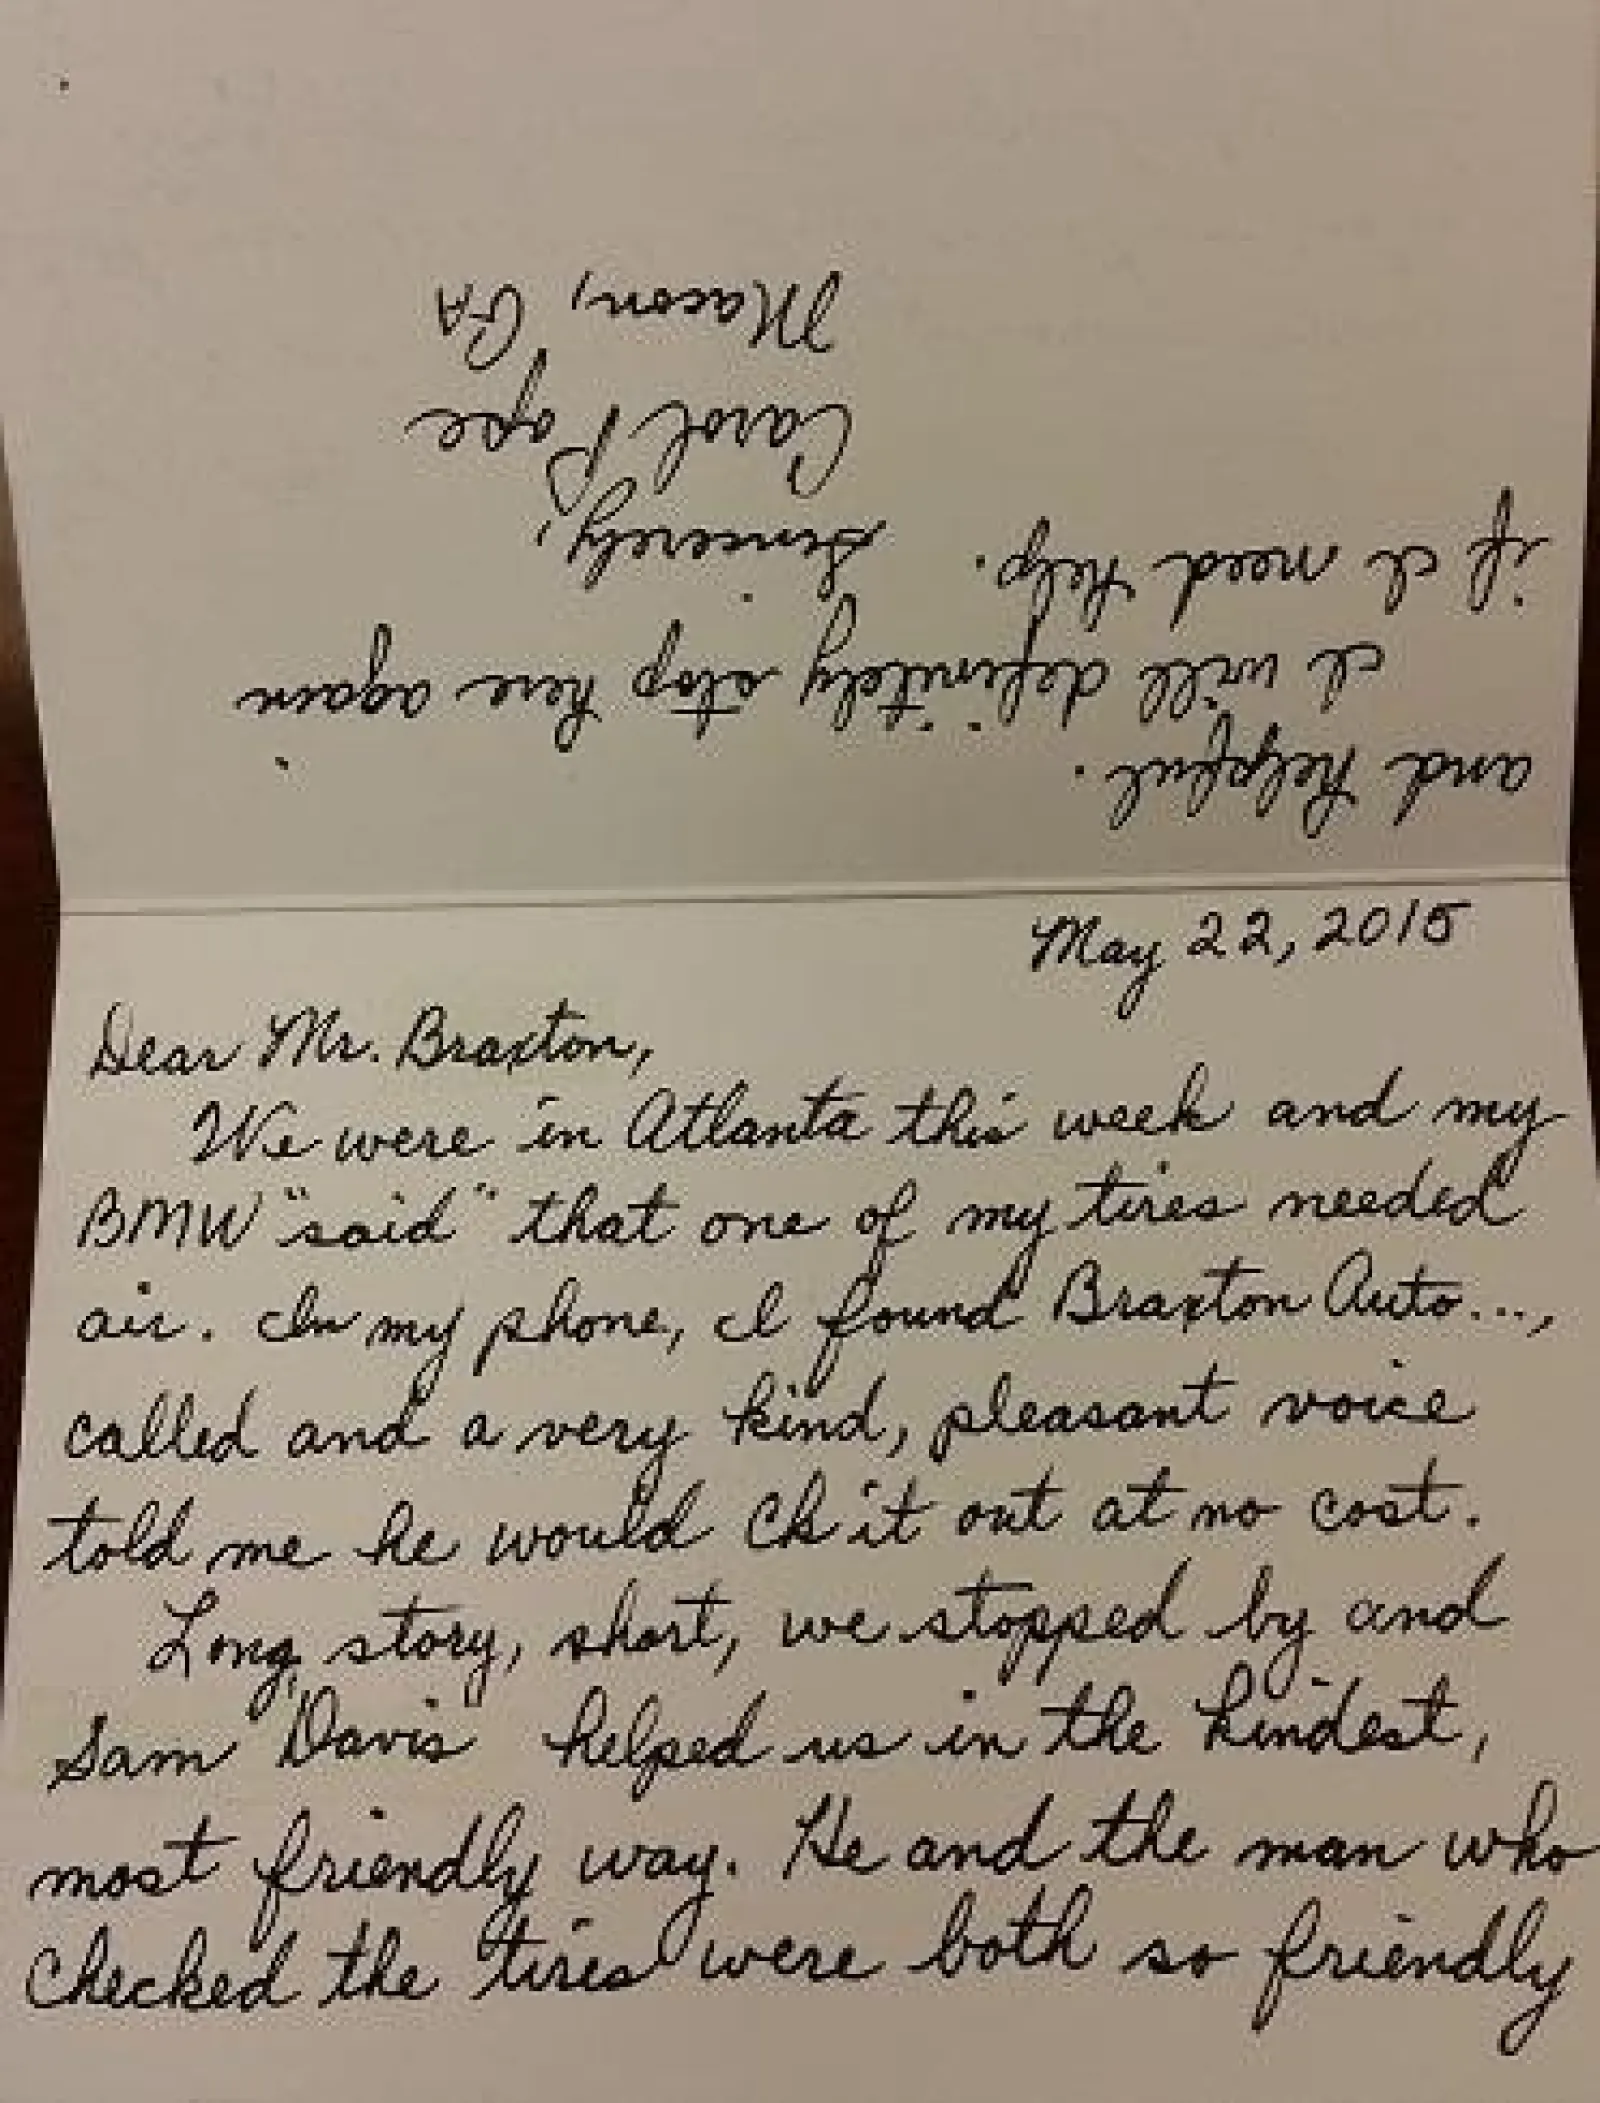 May 22, 2015
Dear Mr. Braxton,
We were in Atlanta this week and my
BMW "said" that one of my tires needed
air. In my phone, I found Braxton Auto...,
called and a very kind, pleasant voice
told me he would ck it out at no cost.
Long, story, short, we stopped by and
Sam Davis helped us in the kindest,
most friendly way. He and the man who
checked the tires were both so friendly
and helpful.
I will definitely stop here again
if I need help.
Sincerely,
Carol Pope
Macon, GA